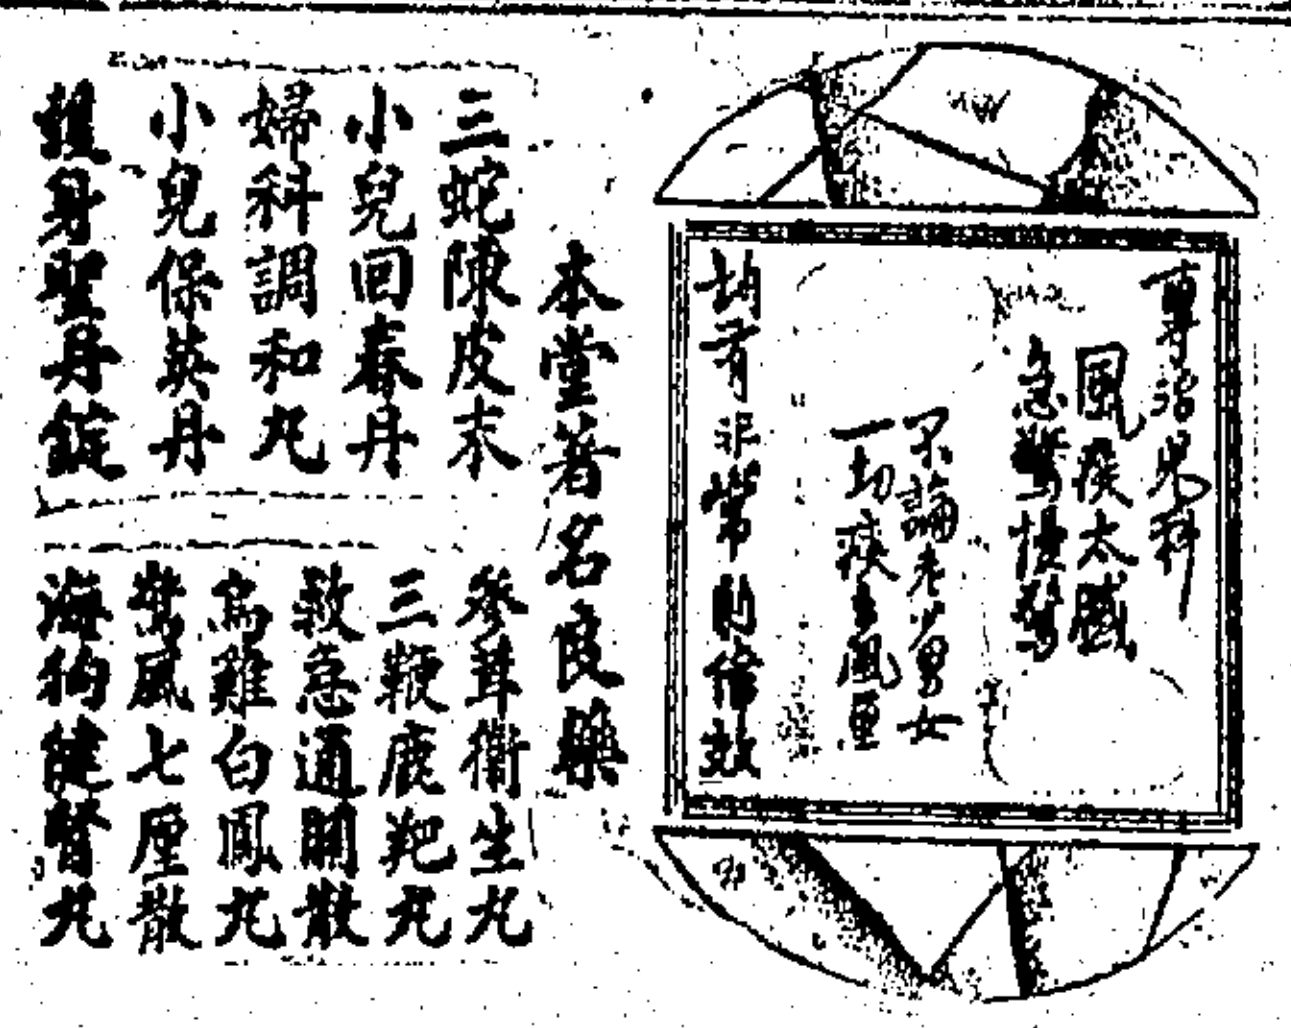 專治兒科
風痰太盛
急驚慢驚
不論老少男女
一切痰多風
均有非常的偉效
本堂著名良藥
三蛇陳皮末
小兒回春丹
婦科調和丸
小兒保英丹
護身聖丹錠
參茸衛生丸
三鞭鹿丸
救急通關散
烏雞白鳳丸
驚風七厘散
海狗健腎丸